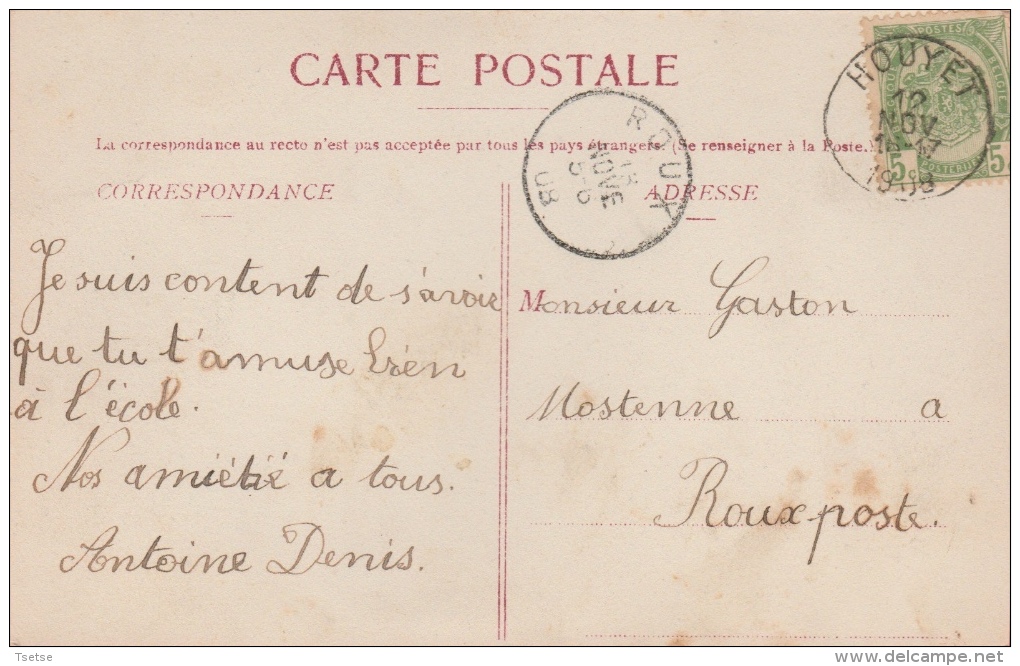 CARTE POSTALE
La correspondance au recto n'est pas acceptée par tous les pays étrangers. (Se renseigner à la Poste.)
CORRESPONDANCE
Je suis content de s'avoir
que tu t'amuse bien
à l'école.
Nos amiétié a tous.
Antoine Denis.
ADRESSE
Monsieur Gaston
Mostenne a
Roux-poste.
ROUX
13
NOVE
5-6
08
HOUYET
12
NOV
16-17
1908
POSTES
5c
5c
Tsetse
delcampe.net